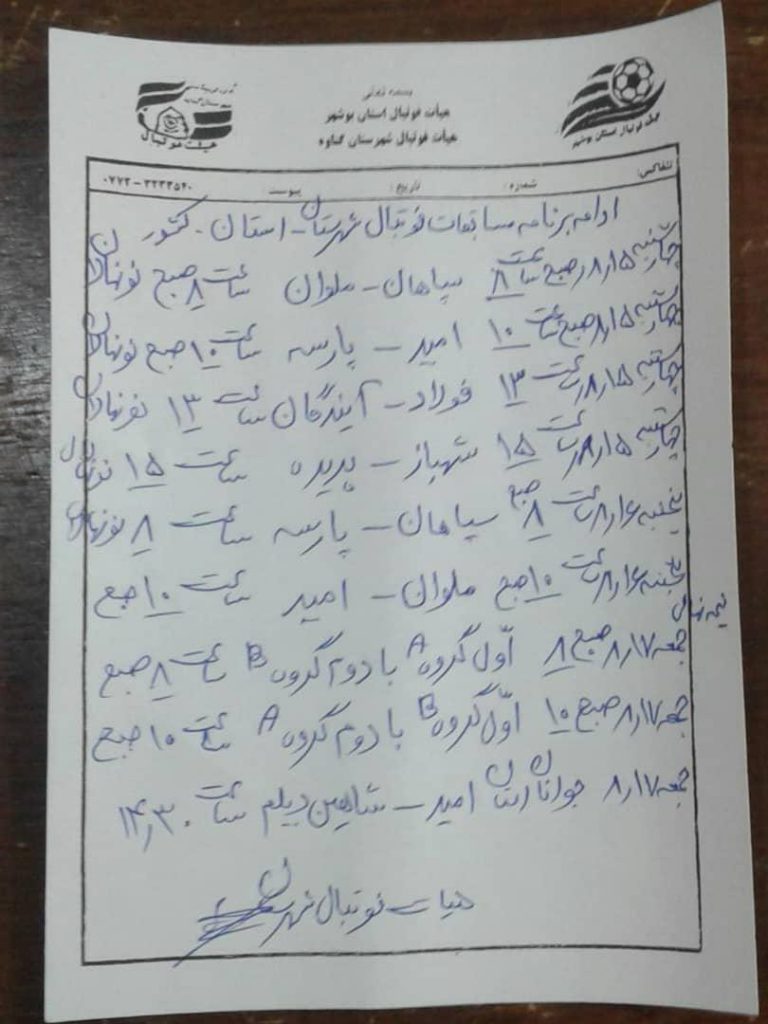 بسمه تعالی
هیأت فوتبال استان بوشهر
هیأت فوتبال شهرستان گناوه
هیئت فوتبال
هیأت فوتبال استان بوشهر
تلفاکس: شماره: تاریخ: پیوست ۰۷۷۲-۳۲۳۳۵۴۰
ادامه برنامه مسابقات فوتبال شهرستان - استان - کشور
چهارشنبه ۸٫۱۵ صبح ساعت ۸ سپاهان - ملوان ساعت ۸ صبح نونهالان
چهارشنبه ۸٫۱۵ صبح ساعت ۱۰ امید - پارسه ساعت ۱۰ صبح نونهالان
چهارشنبه ۸٫۱۵ ساعت ۱۳ فولاد - آیندگان ساعت ۱۳ نونهالان
چهارشنبه ۸٫۱۵ ساعت ۱۵ شهباز - پدیده ساعت ۱۵ نونهالان
پنجشنبه ۸٫۱۶ ساعت ۸ صبح سپاهان - پارسه ساعت ۸ نونهالان
پنجشنبه ۸٫۱۶ ساعت ۱۰ صبح ملوان - امید ساعت ۱۰ صبح
نیمه نهایی
جمعه ۸٫۱۷ صبح ۸ اوّل گروه A با دوم گروه B ساعت ۸ صبح
جمعه ۸٫۱۷ صبح ۱۰ اوّل گروه B با دوم گروه A ساعت ۱۰ صبح
جمعه ۸٫۱۷ جوانان استان امید - شاهین دیلم ساعت ۱۴٫۳۰
هیات فوتبال شهرستان